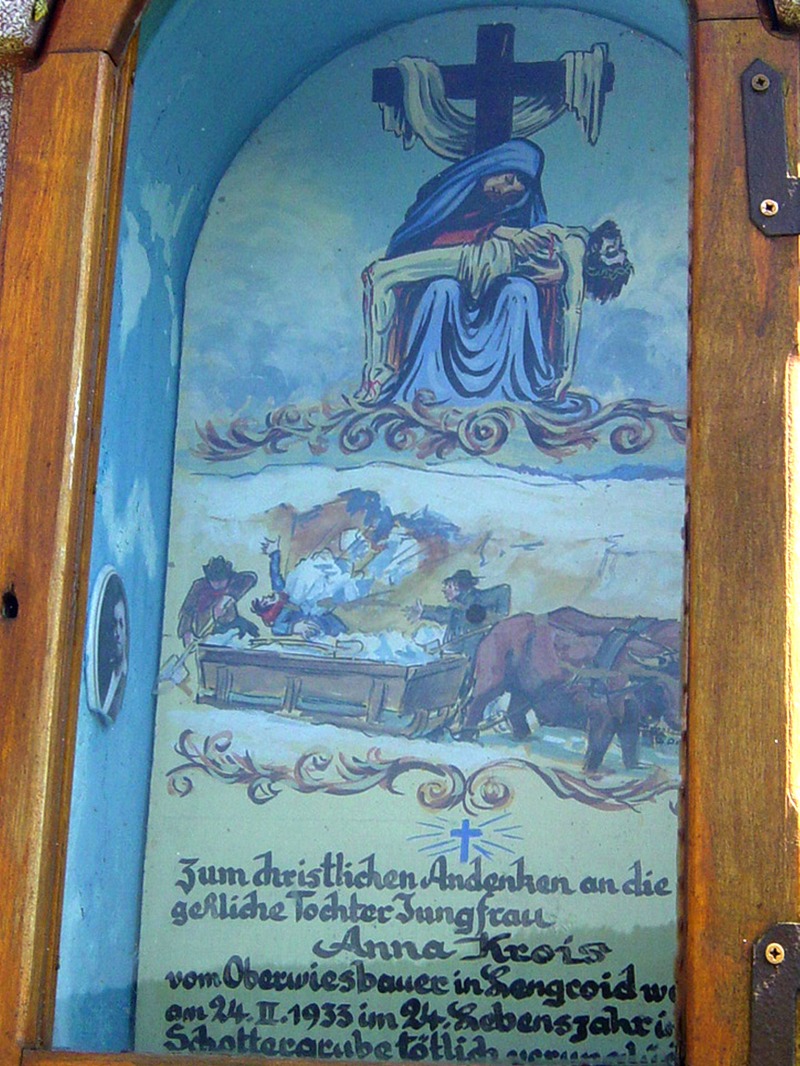 Zum christlichen Andenken an die
geßliche Tochter Jungfrau
Anna Krois
vom Oberwiesbauer in Lengroid
am 24. II. 1933 im 24. Lebensjahr
Schottergrube tötlich